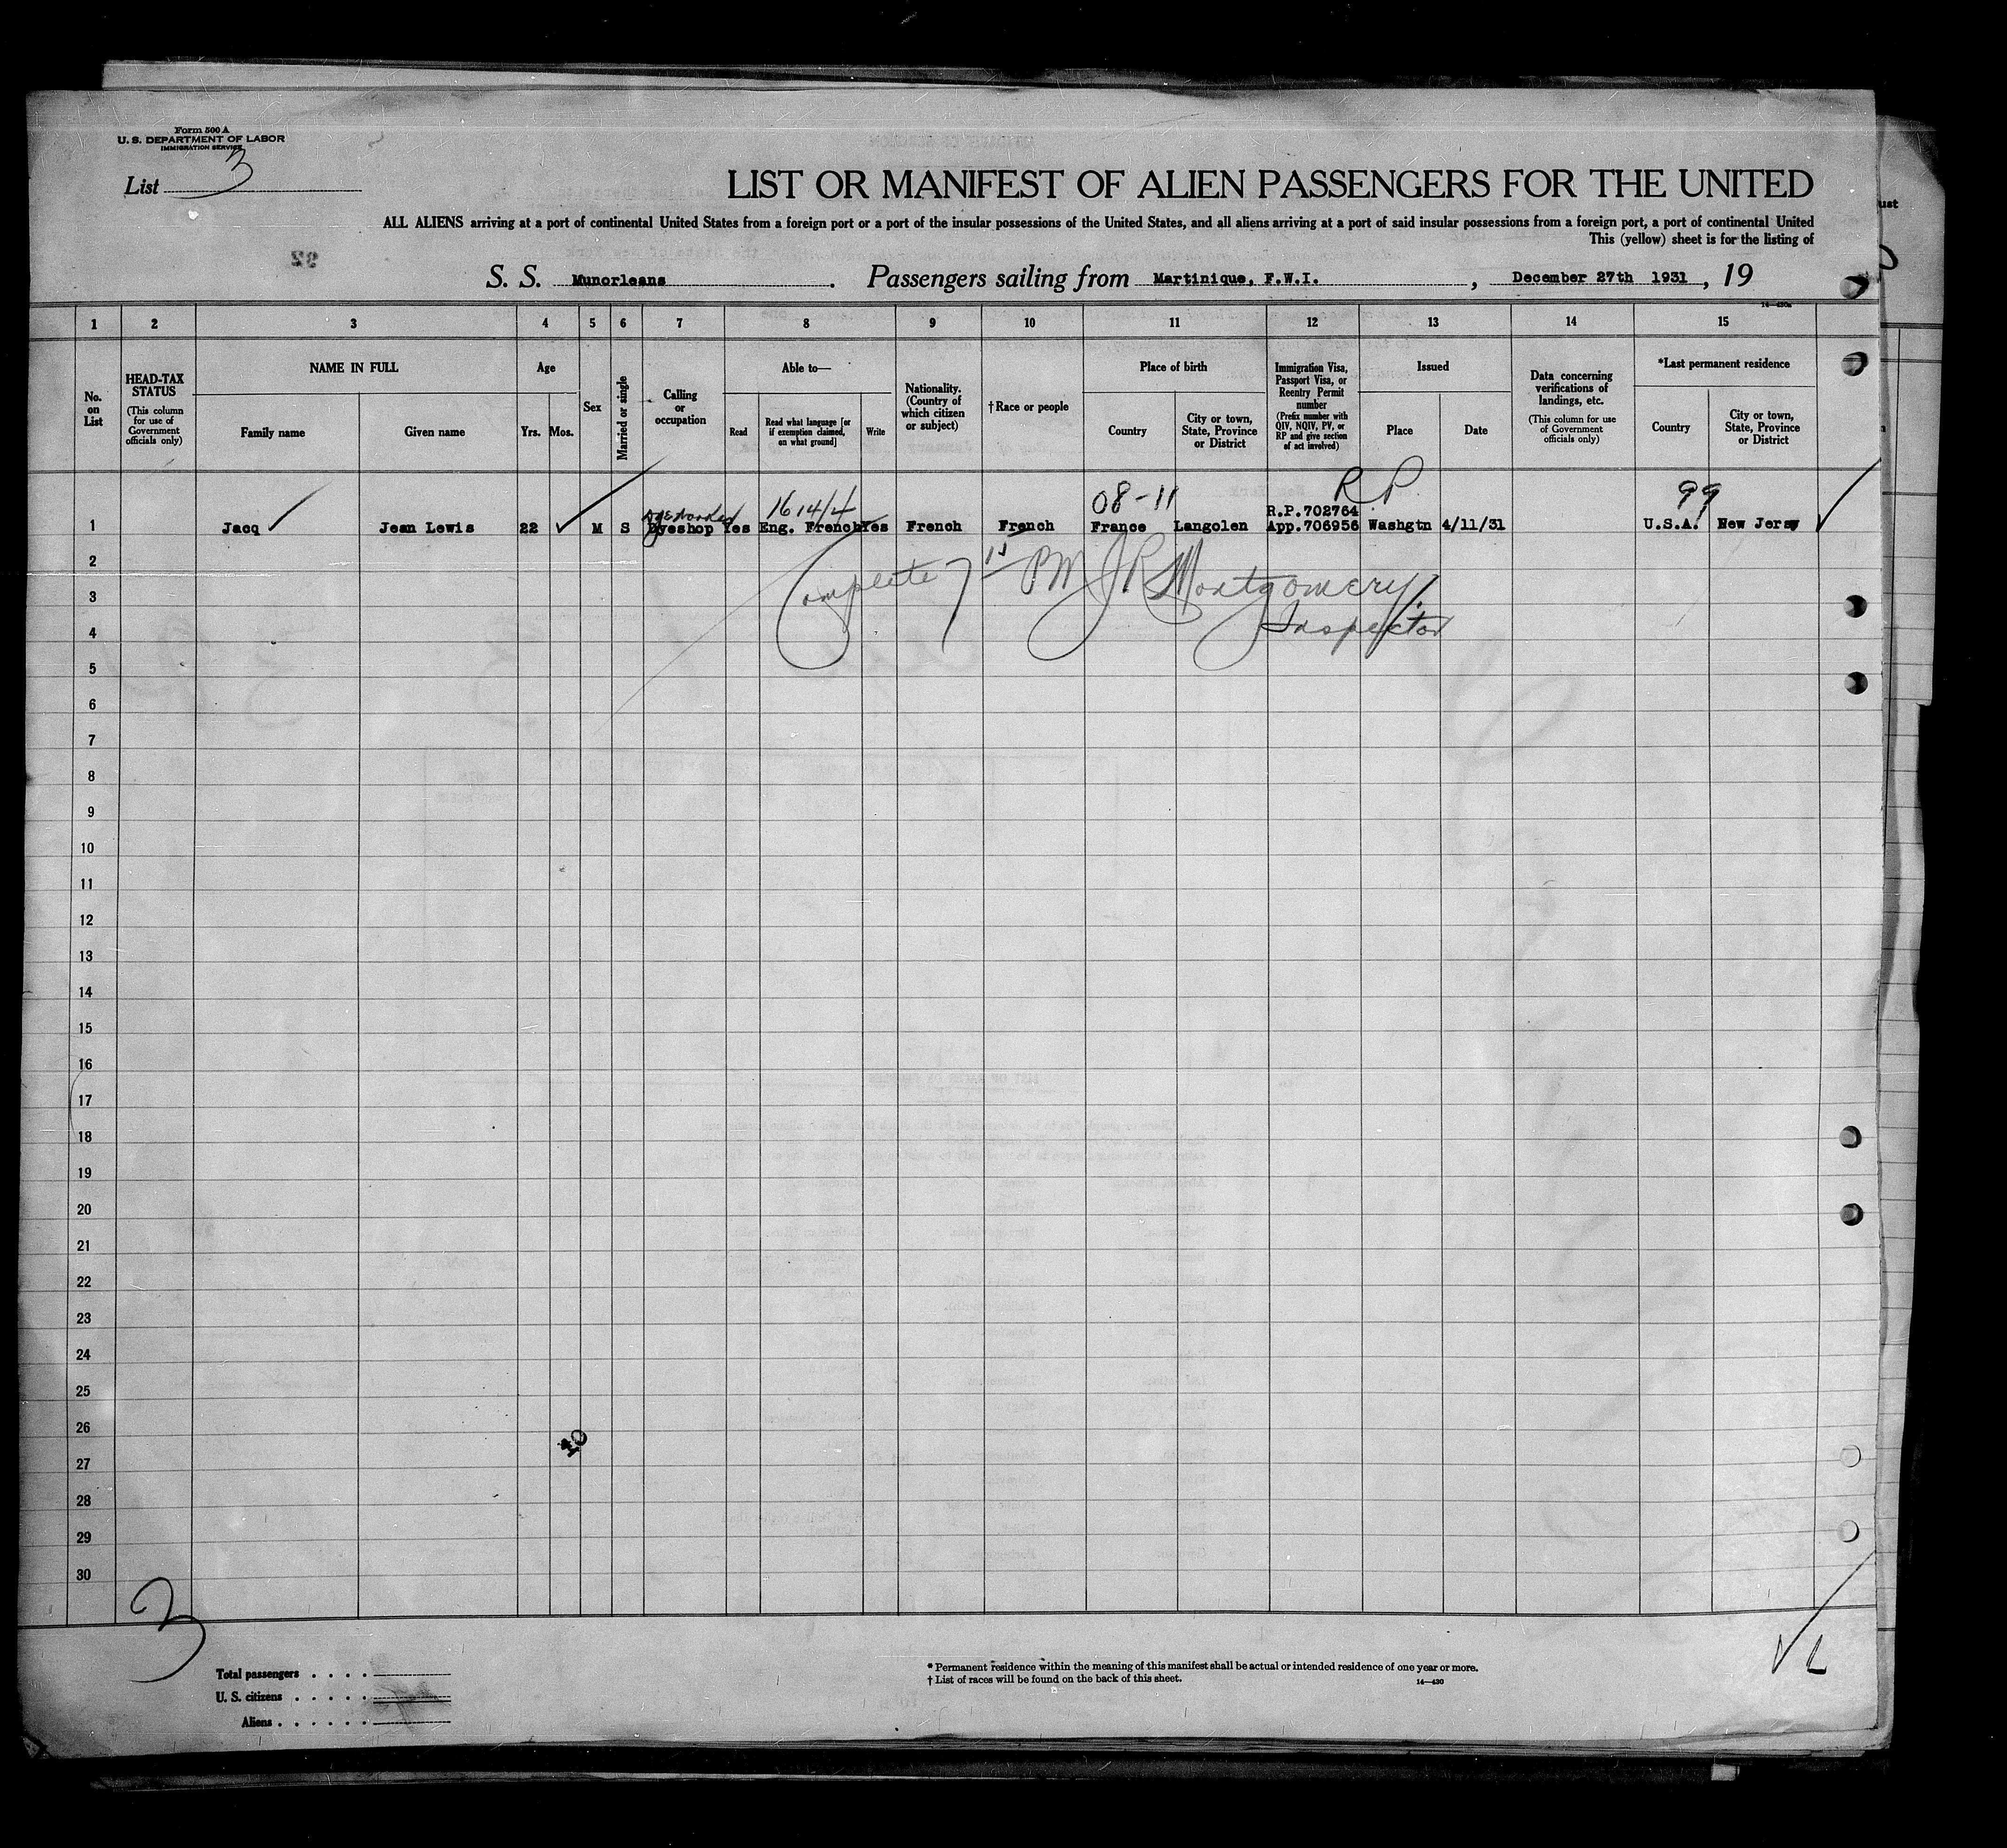 Form 500 A
U. S. DEPARTMENT OF LABOR
IMMIGRATION SERVICE
List 3
LIST OR MANIFEST OF ALIEN PASSENGERS FOR THE UNITED
ALL ALIENS arriving at a port of continental United States from a foreign port or a port of the insular possessions of the United States, and all aliens arriving at a port of said insular possessions from a foreign port, a port of continental United
This (yellow) sheet is for the listing of
92
S. S. Munorleans. Passengers sailing from Martinique, F.W.I., December 27th 1931, 19
14—430a
1 2 3 4 5 6 7 8 9 10 11 12 13 14 15
No. on List
HEAD-TAX STATUS
(This column for use of Government officials only)
NAME IN FULL
Family name
Given name
Age
Yrs. Mos.
Sex
Married or single
Calling or occupation
Able to—
Read
Read what language [or if exemption claimed, on what ground]
Write
Nationality. (Country of which citizen or subject)
†Race or people
Place of birth
Country
City or town, State, Province or District
Immigration Visa, Passport Visa, or Reentry Permit number
(Prefix number with QIV, NQIV, PV, or RP and give section of act involved)
Issued
Place
Date
Data concerning verifications of landings, etc.
(This column for use of Government officials only)
*Last permanent residence
Country
City or town, State, Province or District
16 14/4 08-11 RP 99
R.P.702764
1 Jacq Jean Lewis 22 M S Dyeshop Yes Eng. French Yes French French France Langolen App.706956 Washgtn 4/11/31 U.S.A. New Jersy
Complete 7 15 PM J R Montgomery
Inspector
2
3
4
5
6
7
8
9
10
11
12
13
14
15
16
17
18
19
20
21
22
23
24
25
26
40
27
28
29
30
3
Total passengers . . . .
U. S. citizens . . . . .
Aliens . . . . . .
* Permanent residence within the meaning of this manifest shall be actual or intended residence of one year or more.
† List of races will be found on the back of this sheet.
14—430